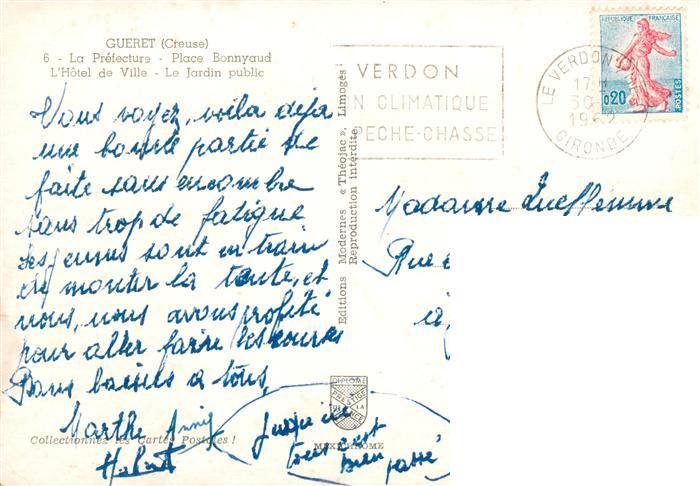 GUERET (Creuse)
6 - La Préfecture - Place Bonnyaud
L'Hôtel de Ville - Le Jardin public
Vous voyez, voila déja
une bonne partie de
faite sans encombre
sans trop de fatigue
Les jeunes sont en train
de monter la tente, et
nous, nous avons profité
pour aller faire les courses
Bons baisers a tous,
Marthe Annie
Hubert
Jusqu'ici
tout c'est
bien passé
Collectionnez les Cartes Postales !
Editions Modernes « Théojac », Limoges
Reproduction interdite
DIPLOME
PRESTIGE
DE LA
FRANCE
MEXICHROME
VERDON
N CLIMATIQUE
PECHE-CHASSE
LE VERDON
17H
30
196
GIRONDE
REPUBLIQUE FRANÇAISE
0,20
POSTES
Madame
Rue